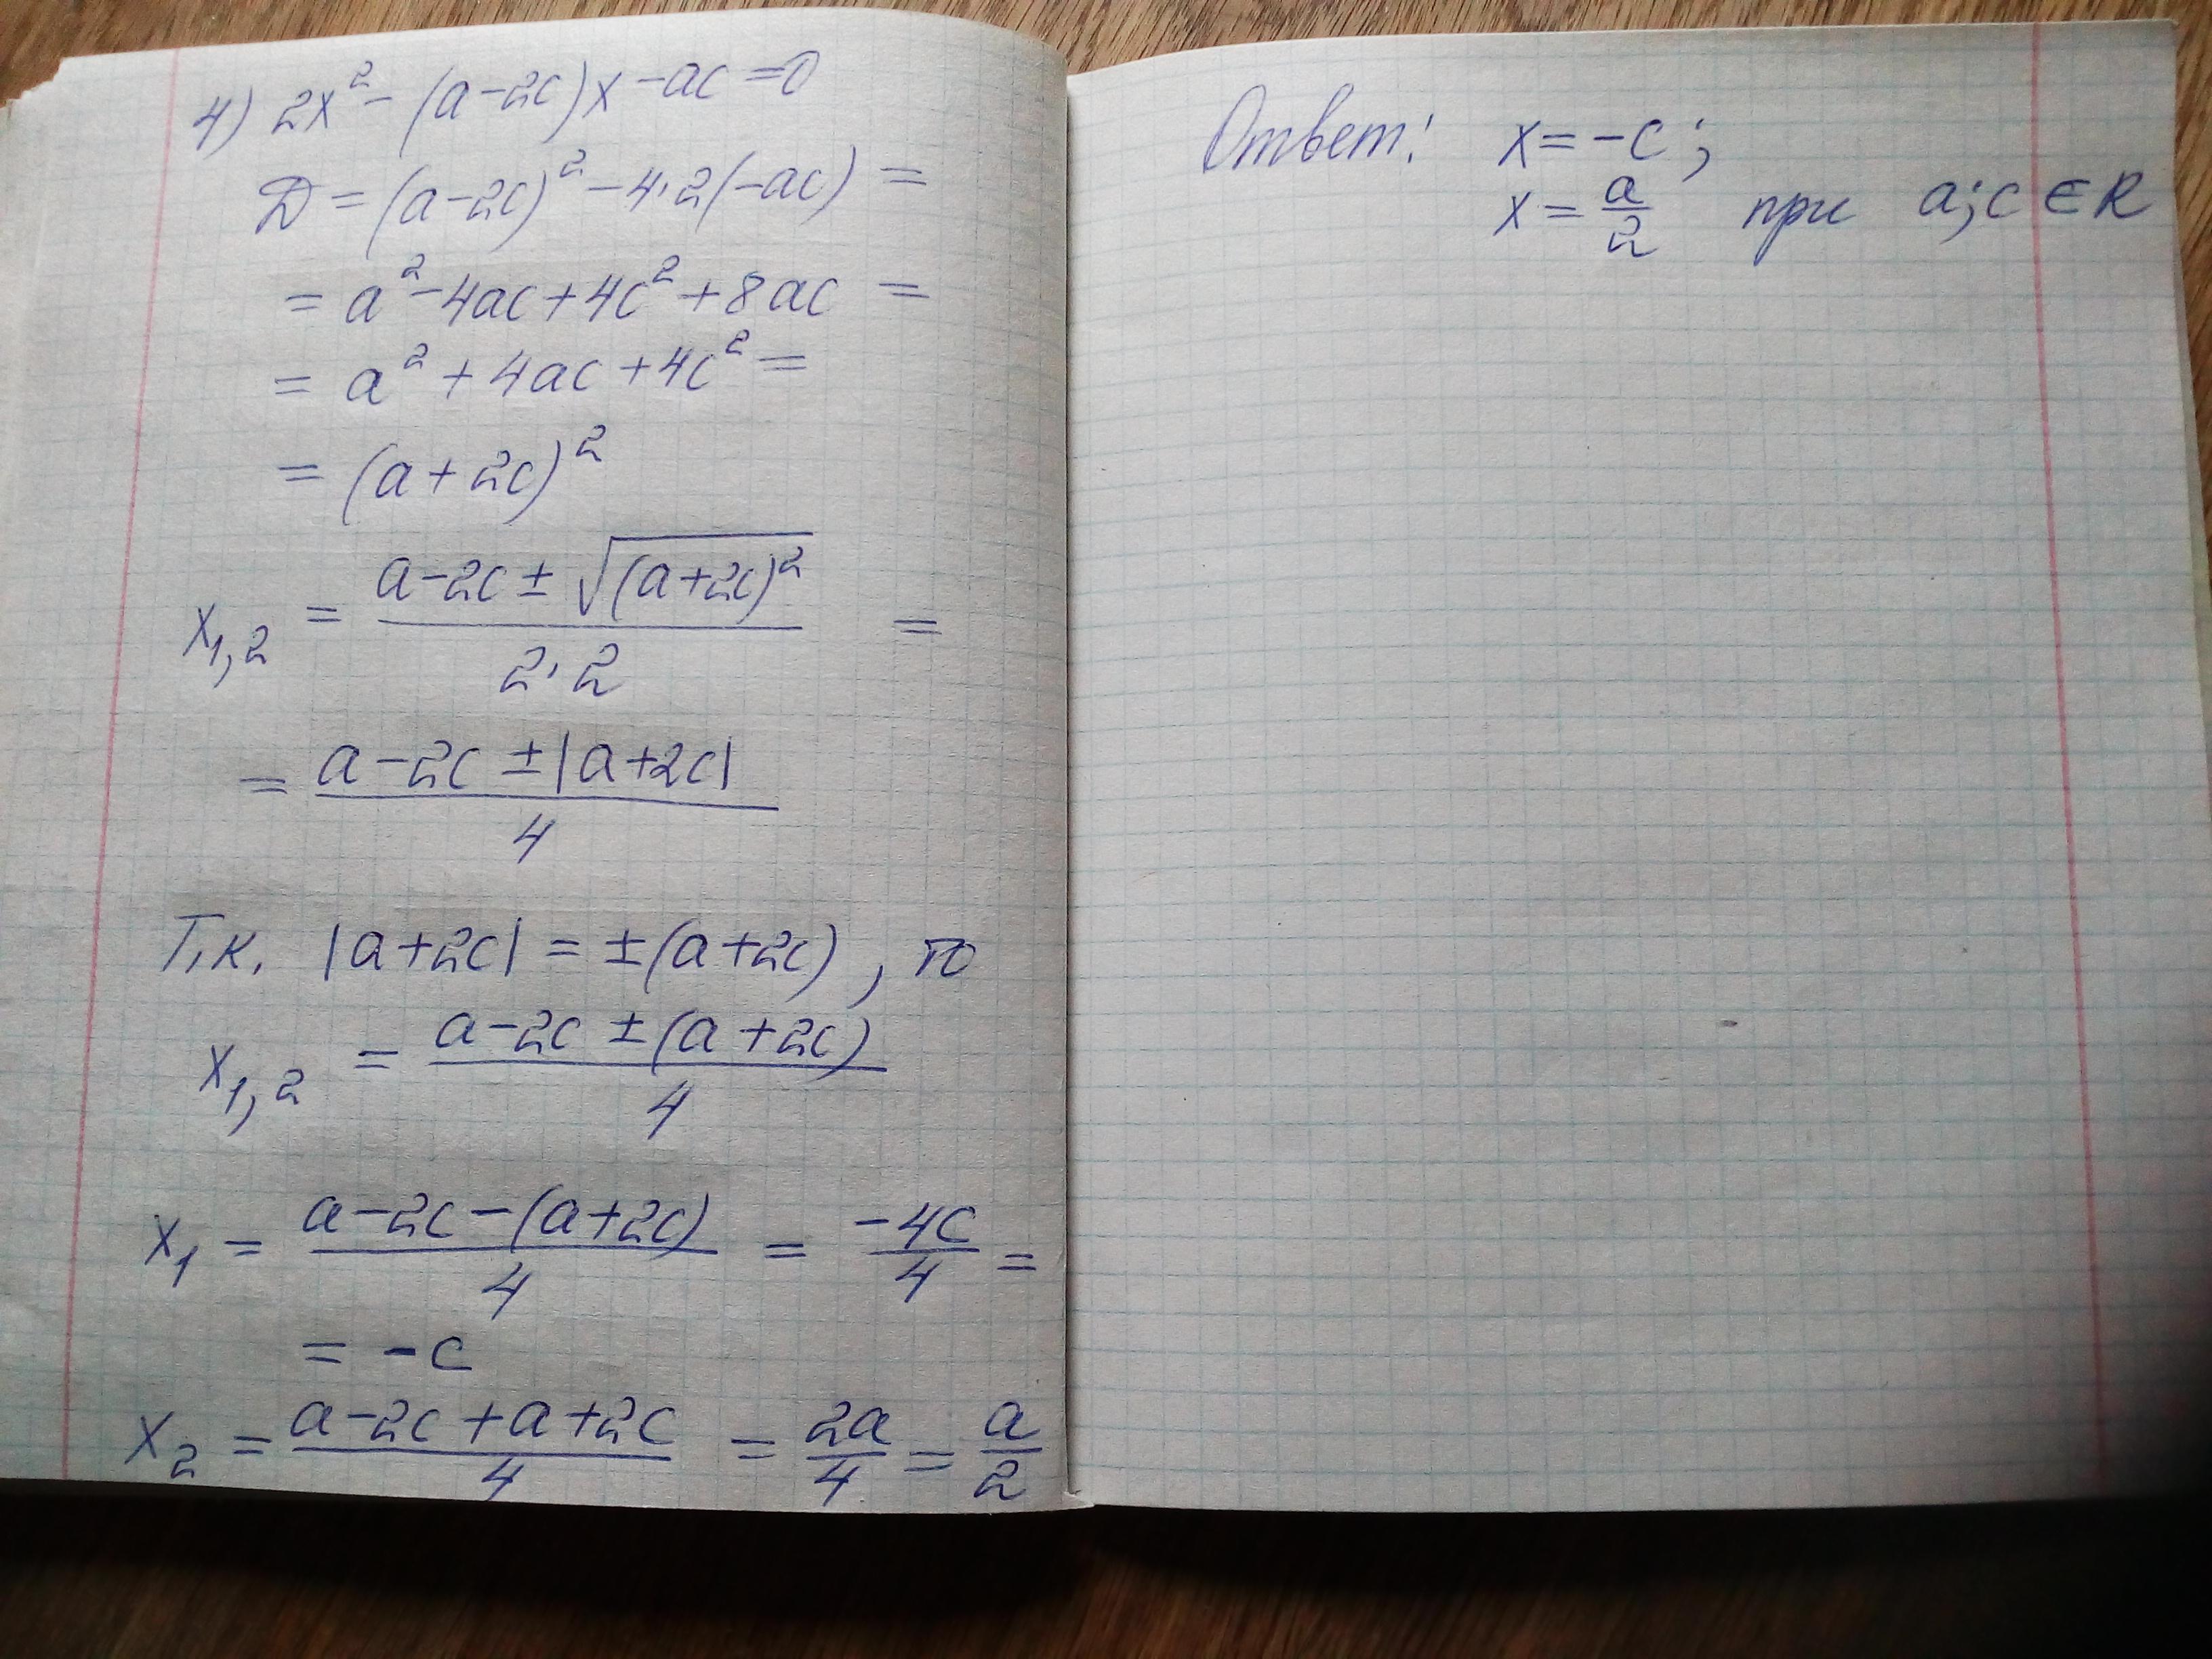 4) 2x² - (a-2c)x - ac = 0
D = (a-2c)² - 4·2(-ac) =
= a² - 4ac + 4c² + 8ac =
= a² + 4ac + 4c² =
= (a+2c)²
x₁,₂ = (a-2c ± √((a+2c)²))/(2·2) =
= (a-2c ± |a+2c|)/4
Т.к. |a+2c| = ±(a+2c), то
x₁,₂ = (a-2c ± (a+2c))/4
x₁ = (a-2c-(a+2c))/4 = -4c/4 =
= -c
x₂ = (a-2c+a+2c)/4 = 2a/4 = a/2
Ответ: x = -c;
x = a/2 при a;c ∈ R